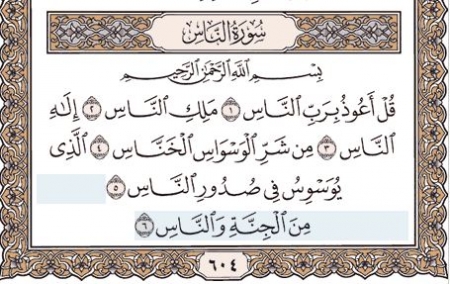 سُورَةُ النَّاسِ
بِسْمِ ٱللَّهِ ٱلرَّحْمَٰنِ ٱلرَّحِيمِ
قُلْ أَعُوذُ بِرَبِّ ٱلنَّاسِ ١ مَلِكِ ٱلنَّاسِ ٢ إِلَٰهِ
ٱلنَّاسِ ٣ مِن شَرِّ ٱلْوَسْوَاسِ ٱلْخَنَّاسِ ٤ ٱلَّذِى
يُوَسْوِسُ فِى صُدُورِ ٱلنَّاسِ ٥
مِنَ ٱلْجِنَّةِ وَٱلنَّاسِ ٦
٦٠٤